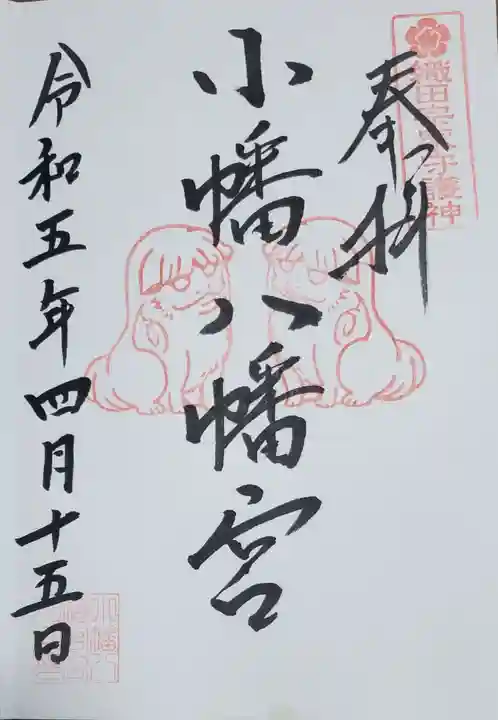 織田宗家守護神
奉拝
小幡八幡宮
令和五年四月十五日